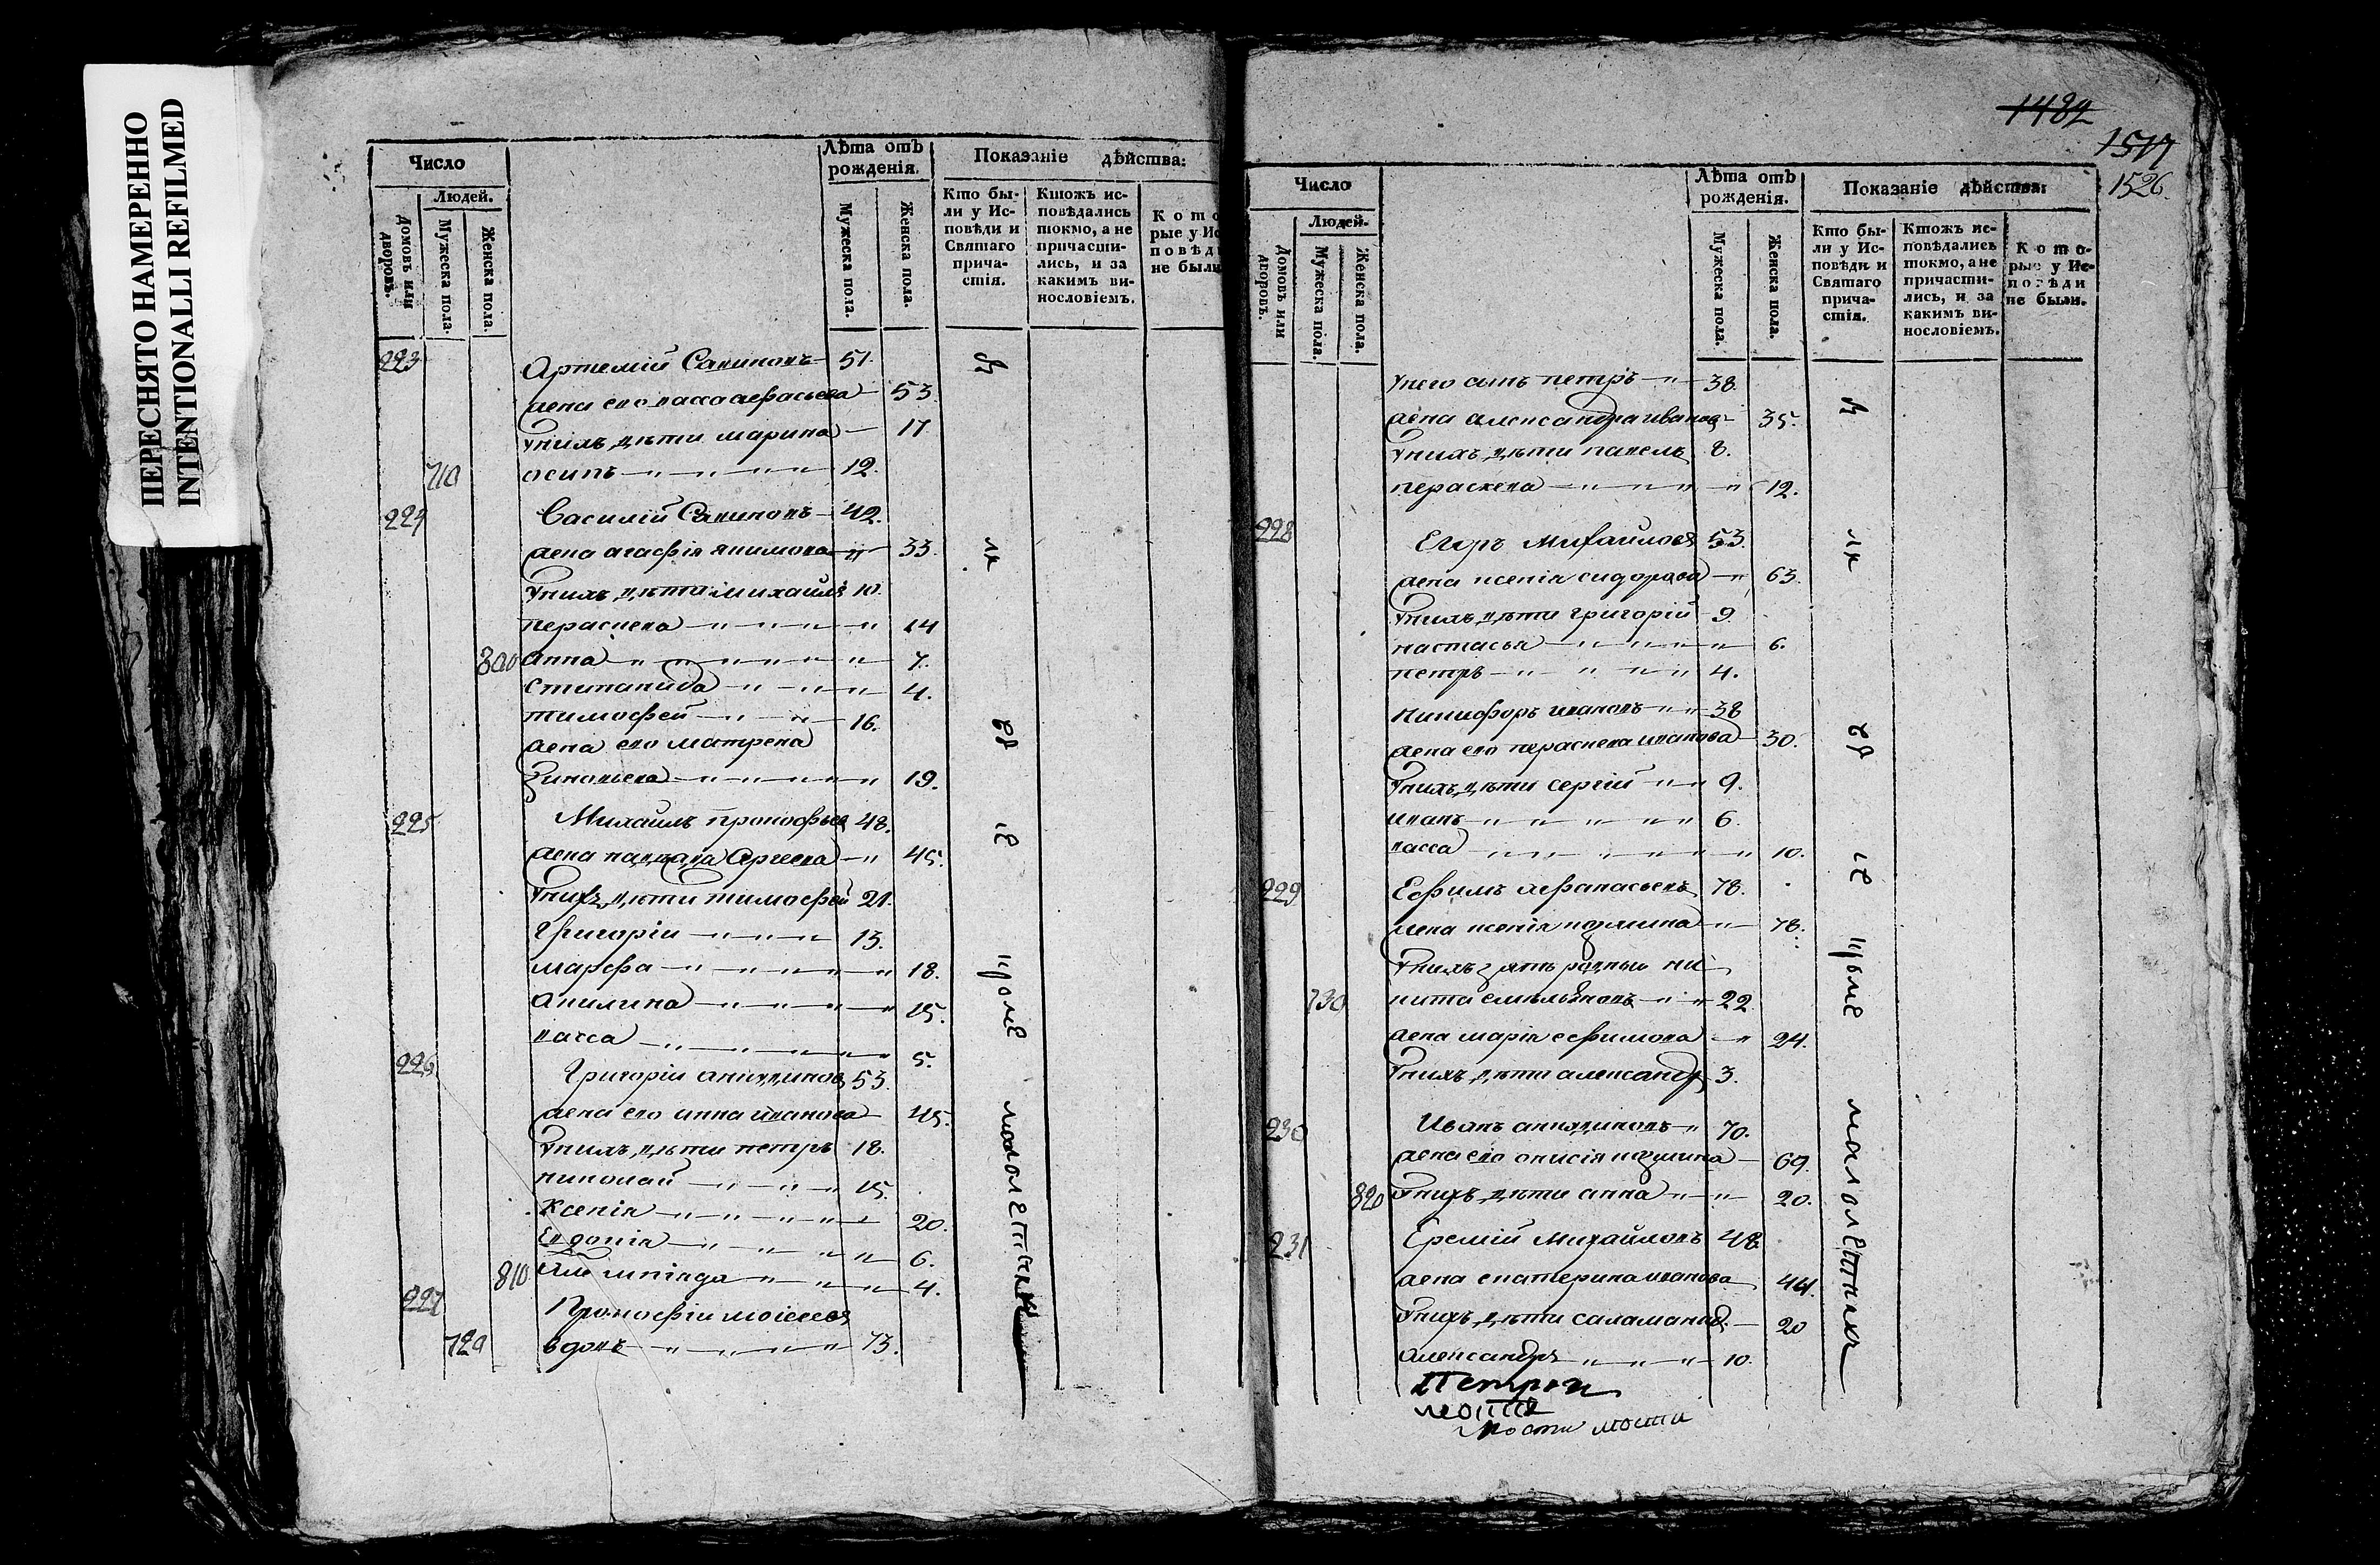 ПЕРЕСНЯТО НАМЕРЕННО
INTENTIONALLI REFILMED
Число
Людей.
Домовъ или дворовъ.
Мужеска пола.
Женска пола.
Лѣта отъ рожденія.
Мужеска пола.
Женска пола.
Показаніе дѣйства:
Кто были у Исповѣди и Святаго причастія.
Ктожъ исповѣдались токмо, а не причастились, и за какимъ винословіемъ.
Кото
рые у Ис
повѣд
не были
223 Артемій Савиновъ 51.
жена его васса 53.
у нихъ дѣти марина 17
710 осипъ 12.
224 Василій Савиновъ 42.
жена агафія якимова 33.
у нихъ дѣти михаилъ 10.
пераскева 14
800 анна 7.
стипанида 4.
тимофей 16.
жена его матрена
зиновьева 19.
225 Михаилъ прокофьев 48.
жена Сергиева 45.
у нихъ дѣти тимофей 21.
Григорій 13.
марфа 18.
акилина 15.
васса 5.
226 Григорій 53.
жена его анна иванова 45.
у нихъ дѣти петръ 18.
николай 15.
Ксенія 20.
Евдокія 6.
810 4.
227 Прокофій моисеев
720 вдовъ 73.
въ
ихъ
кромѣ
малолѣтныхъ
1482
1517
1526
Число
Людей.
Домовъ или дворовъ.
Мужеска пола.
Женска пола.
Лѣта отъ рожденія.
Мужеска пола.
Женска пола.
Показаніе дѣйства:
Кто были у Исповѣди и Святаго причастія.
Ктожъ исповѣдались токмо, а не причастились, и за какимъ винословіемъ.
Которые у Исповѣди не были.
у него сынъ петръ 38.
жена александра иванова 35.
у нихъ дѣти павелъ 8.
пераскева 12.
228 Егоръ Михайлов 53.
жена ксенія сидорова 63.
у нихъ дѣти григорій 9
настасья 6.
петръ 4.
никифоръ ивановъ 38
жена его пераскева иванова 30.
у нихъ дѣти сергій 9.
иванъ 6.
васса 10.
229 Ефимъ афанасьевъ 78.
жена ксенія козмина 78.
у нихъ зять родный ни
730 кита емельяновъ 22
жена марія ефимова 24.
у нихъ дѣти александръ 3.
230 Иванъ 70.
жена его анисія козмина 69.
820 у нихъ дѣти анна 20.
231 Еремій Михайловъ 48
жена екатерина иванова 44.
у нихъ дѣти саламанид. 20
александръ 10.
малолѣтныхъ